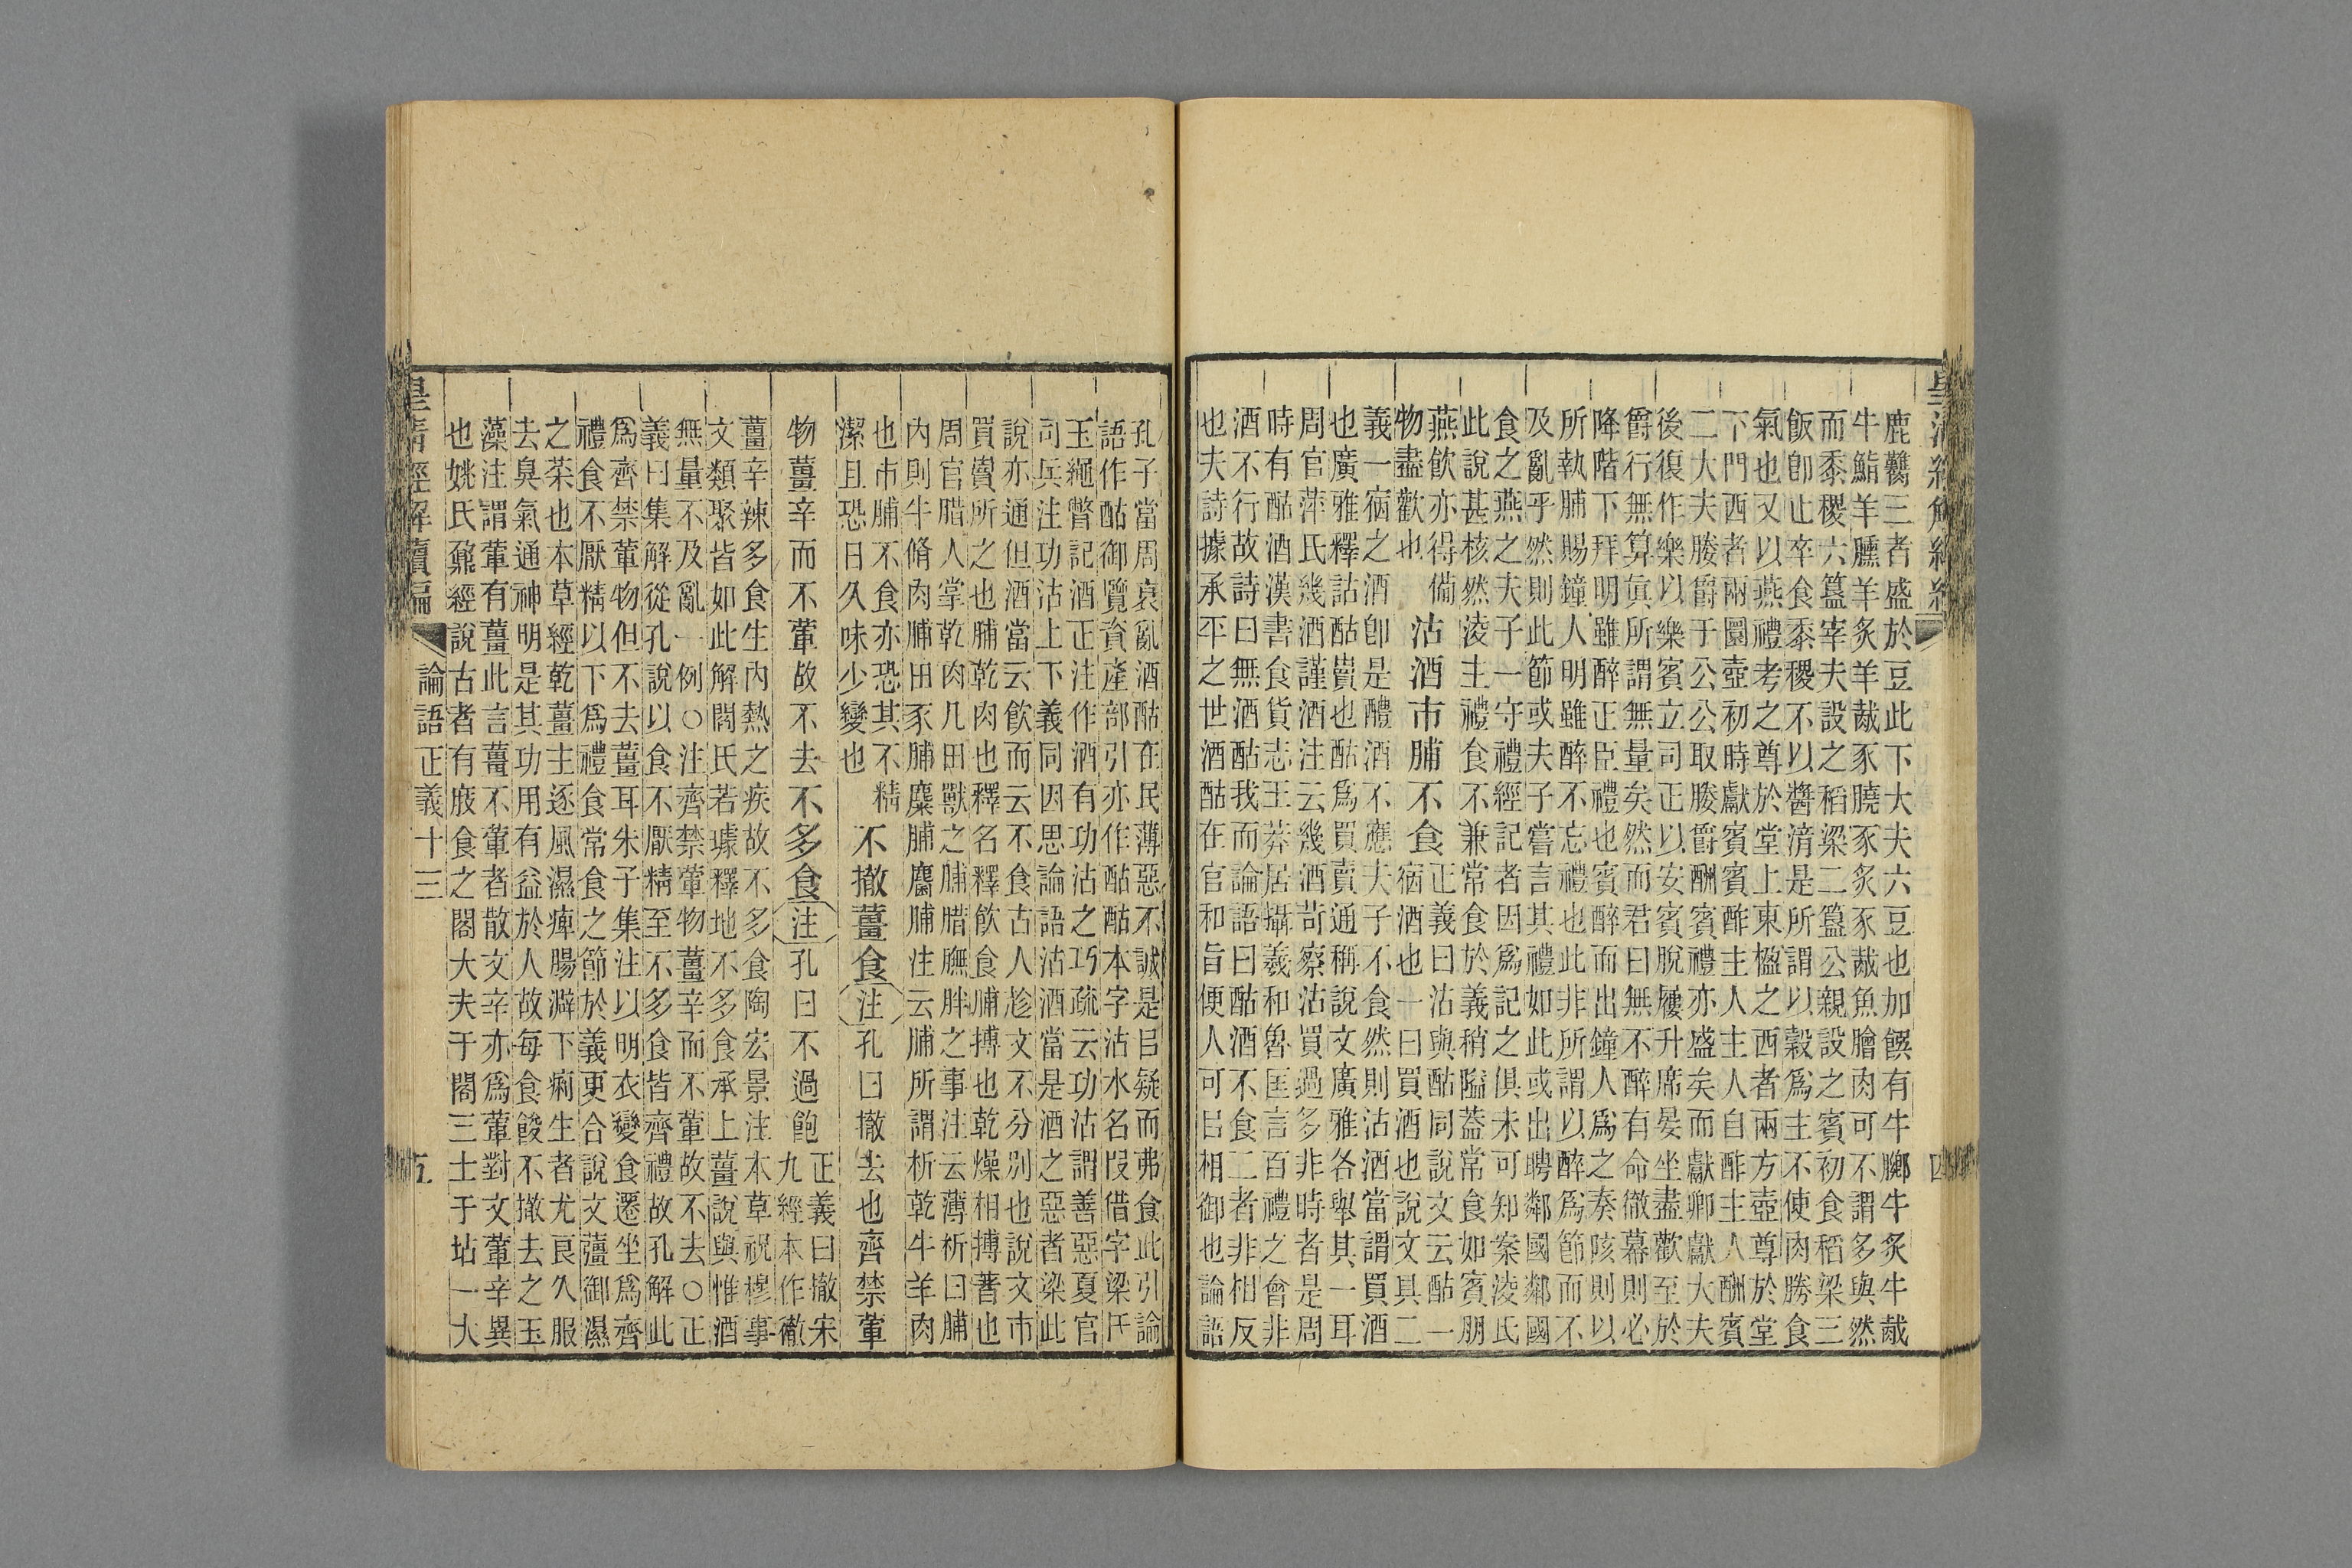 鹿臡三者盛於豆此下大夫六豆也加饌有牛膷牛炙牛胾
牛鮨羊臐羊炙羊胾豕膮豕炙豕胾魚膾肉可不謂多與然
而黍稷六簋宰夫設之稻粱二簋公親設之賓初食稻粱三
飯卽止卒食黍稷不以醬湆是所謂以穀爲主不使肉勝食
氣也又以燕禮考之尊於堂上東楹之西者兩方壺尊於堂
下門西者兩圜壺初時獻賓賓酢主人主人自酢主人酬賓
二大夫媵爵于公公取媵爵酬賓禮亦盛矣而獻卿獻大夫
後復作樂以樂賓立司正以安賓脫屨升席晏坐盡歡至於
爵行無算眞所謂無量矣然而君曰無不醉有命徹幕則必
降階下拜明雖醉正臣禮也賓醉而出鐘人爲之奏陔則以
所執脯賜鐘人明雖醉不忘禮也此非所謂以醉爲節而不
及亂乎然則此節或夫子嘗言其禮如此或出聘鄰國鄰國
食之燕之夫子一守禮經記者因爲記之俱未可知案淩氏
此說甚核然淩主禮食不兼常食於義稍隘蓋常食如賓朋
燕飲亦得備
物盡歡也
沽酒市脯不食
正義曰沽與酤同說文云酤一
宿酒也一曰買酒也說文具二
義一宿之酒卽是醴酒不應夫子不食然則沽酒當謂買酒
也廣雅釋詁酤賣也酤爲買賣通稱說文廣雅各舉其一耳
周官萍氏幾酒謹酒注云幾酒苛察沽買過多非時者是周
時有酤酒漢書食貨志王莽居攝羲和魯匡言百禮之會非
酒不行故詩曰無酒酤我而論語曰酤酒不食二者非相反
也夫詩據承平之世酒酤在官和旨便人可㠯相御也論語
孔子當周衰亂酒酤在民薄惡不誠是㠯疑而弗食此引論
語作酤御覽資產部引亦作酤酤本字沽水名叚借字梁氏
玉繩瞥記酒正注作酒有功沽之巧疏云功沽謂善惡夏官
司兵注功沽上下義同因思論語沽酒當是酒之惡者梁此
說亦通但酒當云飲而云不食古人趁文不分別也說文市
買賣所之也脯乾肉也釋名釋飲食脯搏也乾燥相搏著也
周官腊人掌乾肉凡田獸之脯腊膴胖之事注云薄析曰脯
內則牛脩肉脯田豕脯麋脯麕脯注云脯所謂析乾牛羊肉
也市脯不食亦恐其不精
潔且恐日久味少變也
不撤薑食注孔曰撤去也齊禁葷
物薑辛而不葷故不去不多食注孔曰不過飽
正義曰撤宋
九經本作徹
薑辛辣多食生內熱之疾故不多食陶宏景注本草祝穆事
文類聚皆如此解閻氏若璩釋地不多食承上薑說與惟酒
無量不及亂一例○注齊禁葷物薑辛而不葷故不去○正
義曰集解從孔說以食不厭精至不多食皆齊禮故孔解此
爲齊禁葷物但不去薑耳朱子集注以明衣變食遷坐爲齊
禮食不厭精以下爲禮食常食之節於義更合說文薑御濕
之菜也本草經乾薑主逐風濕痺腸澼下痢生者尤良久服
去臭氣通神明是其功用有益於人故每食餕不撤去之玉
藻注謂葷有薑此言薑不葷者散文辛亦爲葷對文葷辛異
也姚氏鼐經說古者有庪食之閣大夫于閣三士于坫一大
論語正義十三
五